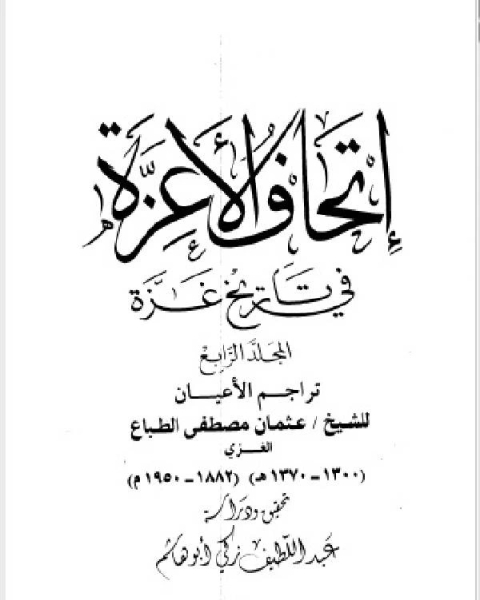 إتحاف الأعزة
في تاريخ غزة
المجلد الرابع
تراجم الأعيان
للشيخ / عثمان مصطفى الطباع
الغزي
(١٣٠٠ - ١٣٧٠ هـ) (١٨٨٢ - ١٩٥٠ م)
تحقيق ودراسة
عبد اللطيف زكي أبو هاشم